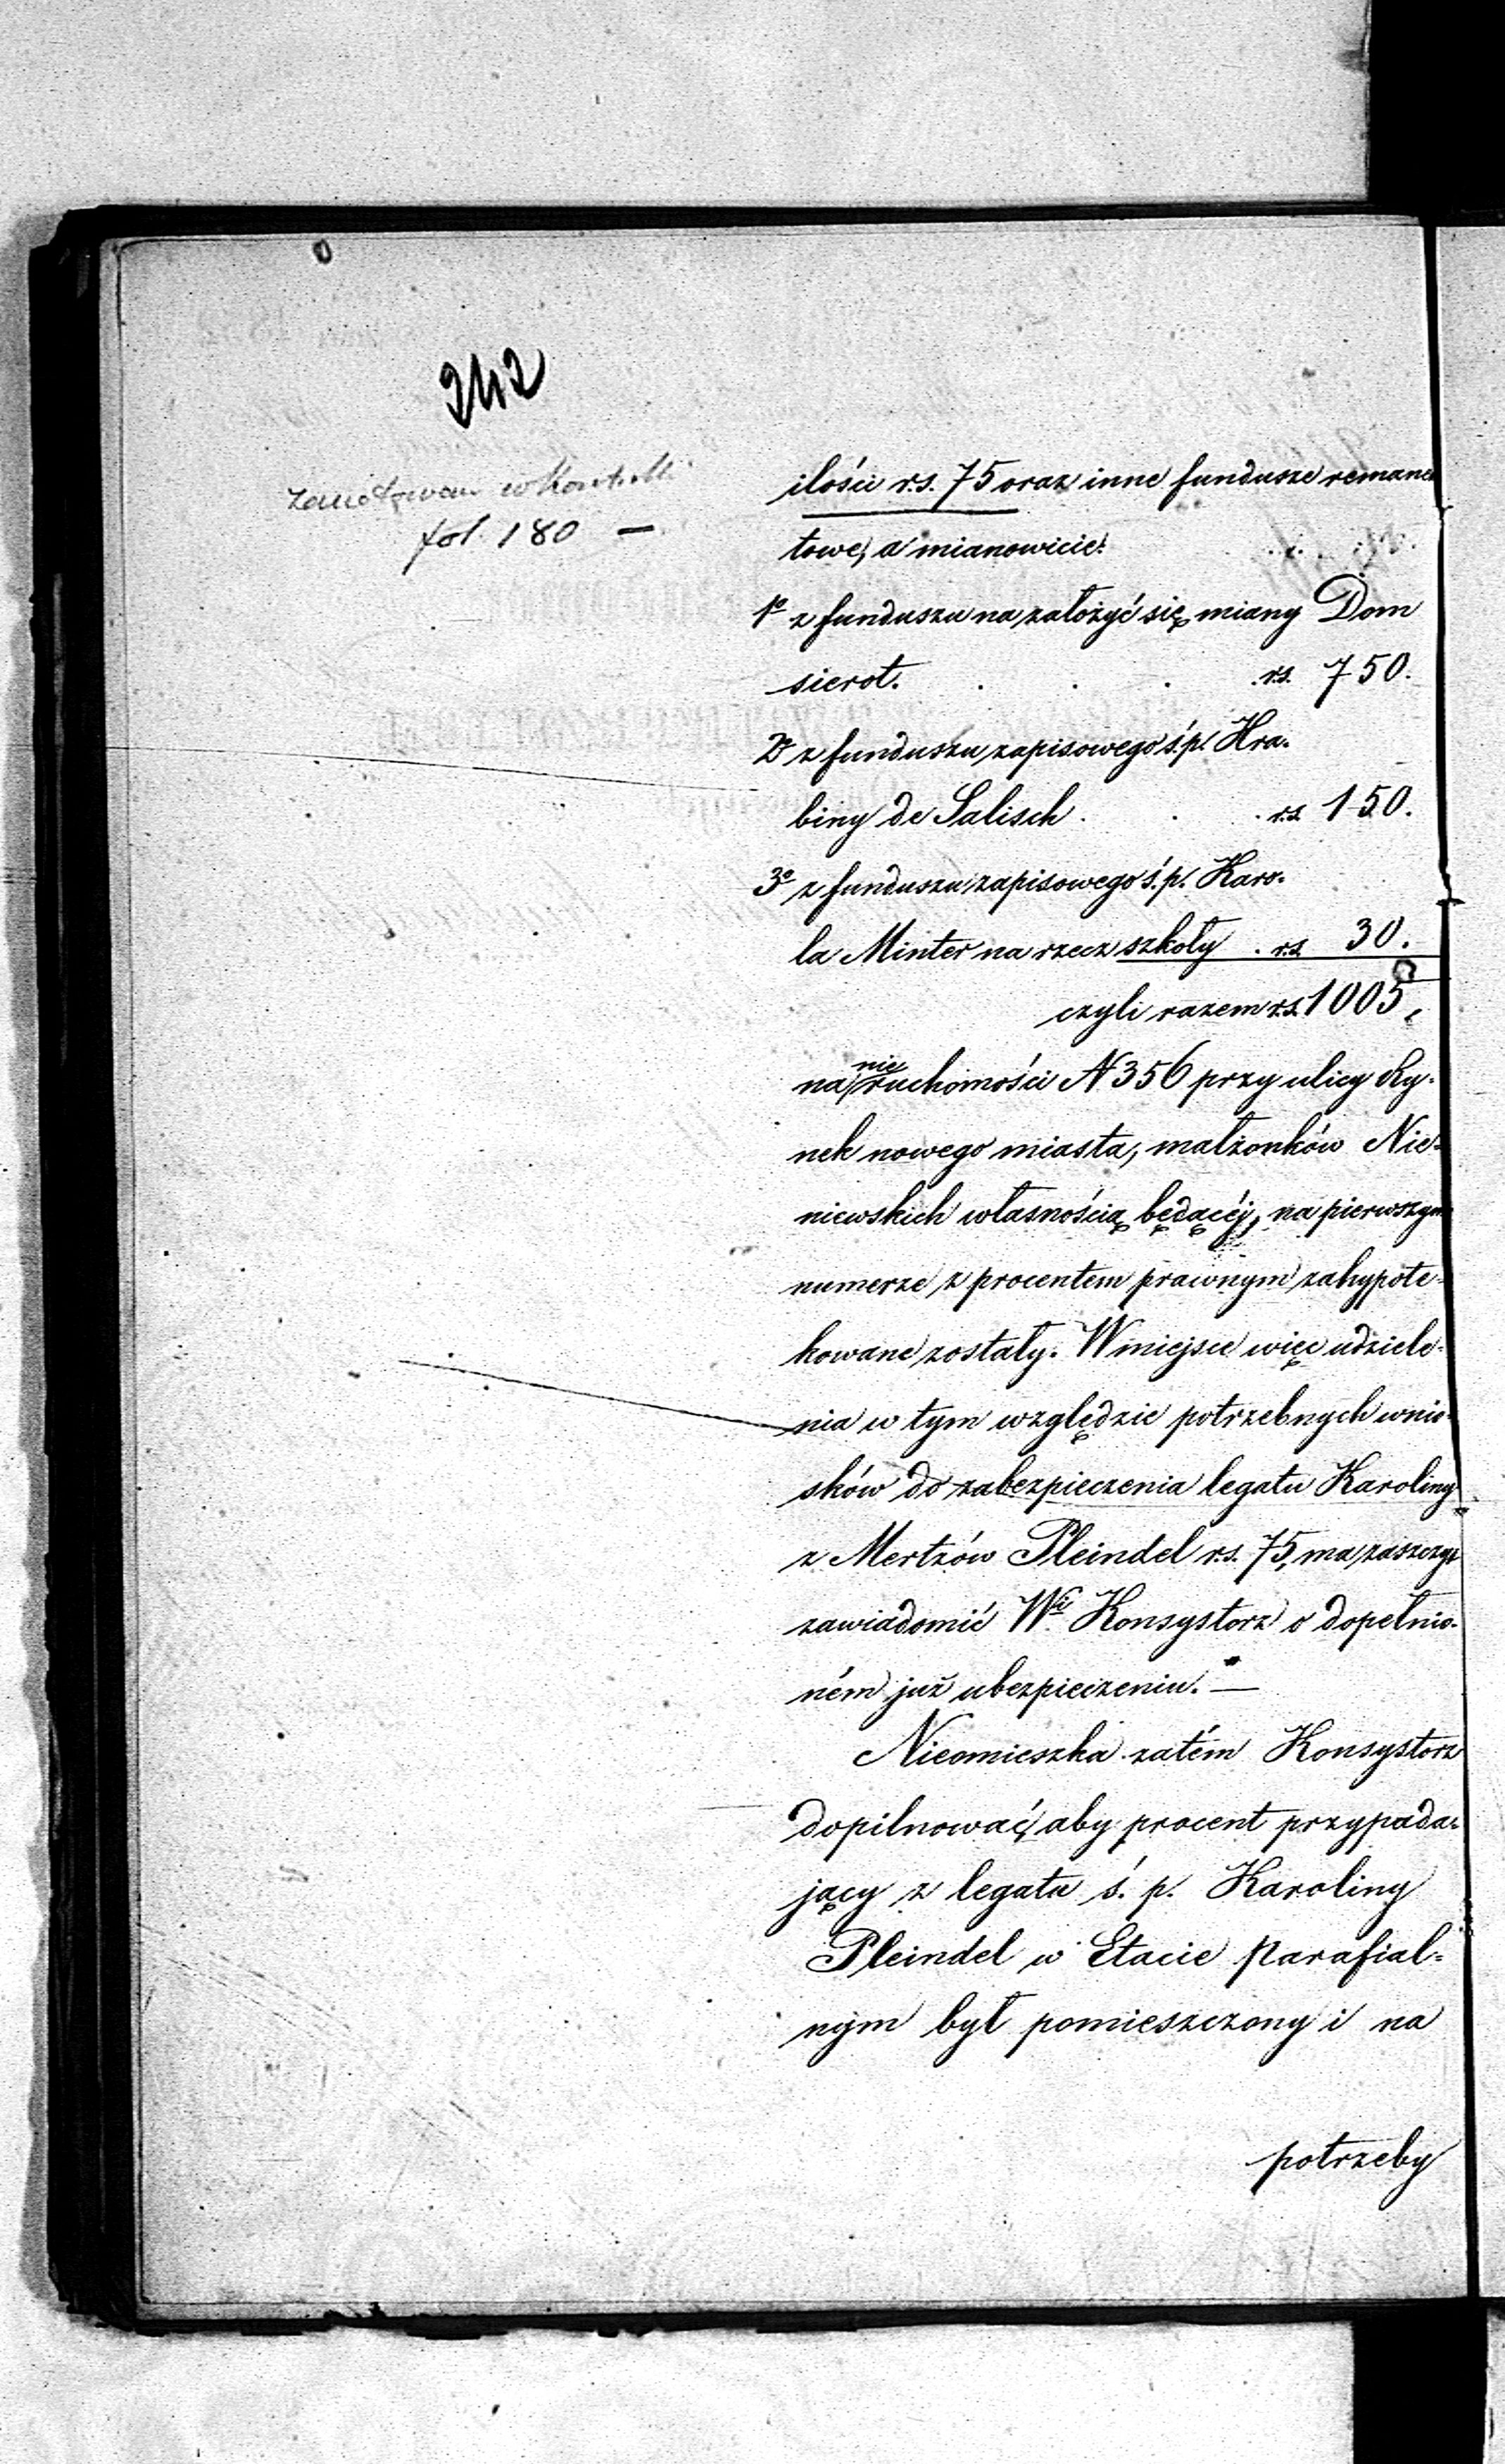 242
zanotowan w Kontroli
fol. 180 —
ilości r.s. 75 oraz inne fundusze remanen
towe, a mianowicie:
1º z funduszu na założyć się miany Dom
sierot. . . . . rs. 750.
2º z funduszu zapisowego ś.p. Hra-
biny de Salisch . . . r.s. 150.
3º z funduszu zapisowego ś.p. Karo-
la Minter na rzecz szkoły . r.s. 30.
czyli razem r.s. 1005,
na nieruchomości N 356 przy ulicy Ry-
nek nowego miasta, małżonków Nie-
niewskich własnością będącéj, na pierwszym
numerze z procentem prawnym zahypote-
kowane zostały. W miejsce więc udziele-
nia w tym względzie potrzebnych wnio-
sków do zabezpieczenia legatu Karoliny
z Mertzów Pleindel r.s. 75, ma zaszczyt
zawiadomić Wi. Konsystorz o dopełnio-
ném już ubezpieczeniu. —
Nieomieszka zatém Konsystorz
dopilnować, aby procent przypada-
jący z legatu ś. p. Karoliny
Pleindel w Etacie Parafial=
nym był pomieszczony i na
potrzeby